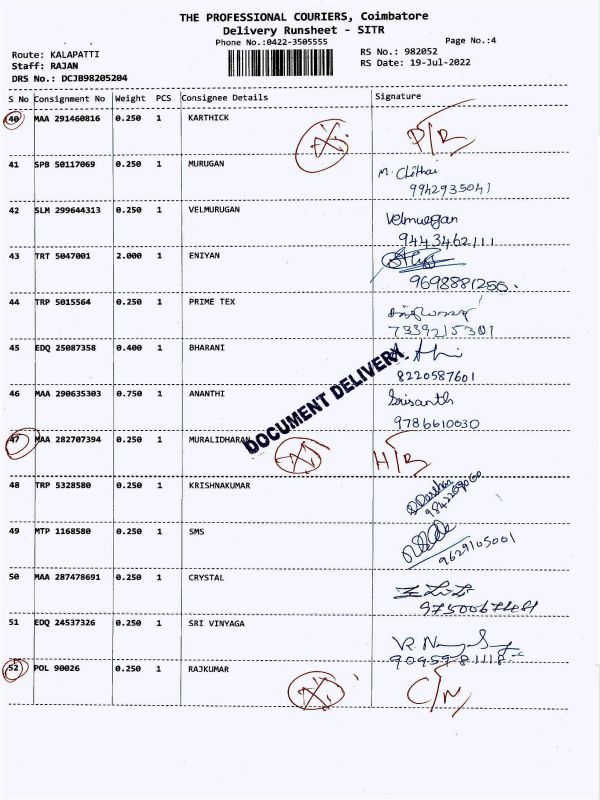 THE PROFESSIONAL COURIERS, Coimbatore
Delivery Runsheet - SITR
Phone No.:0422-3505555
Page No.:4
Route: KALAPATTI
RS No.: 982052
Staff: RAJAN
RS Date: 19-Jul-2022
DRS No.: DCJB98205204
S No Consignment No Weight PCS Consignee Details Signature
40 MAA 291460816 0.250 1 KARTHICK
41 SPB 50117069 0.250 1 MURUGAN M. Chithai
9942935041
42 SLM 299644313 0.250 1 VELMURUGAN Velmurgan
9443462111
43 TRT 5047001 2.000 1 ENIYAN
9698881256
44 TRP 5015564 0.250 1 PRIME TEX
7339215301
45 EDQ 25087358 0.400 1 BHARANI
8220587601
46 MAA 290635303 0.750 1 ANANTHI Srisanth
9786610030
DOCUMENT DELIVERY
47 MAA 282707394 0.250 1 MURALIDHARAN H/R
48 TRP 5328580 0.250 1 KRISHNAKUMAR
49 MTP 1168580 0.250 1 SMS
9629105001
50 MAA 287478691 0.250 1 CRYSTAL
51 EDQ 24537326 0.250 1 SRI VINYAGA
9095981118
52 POL 90026 0.250 1 RAJKUMAR C/N